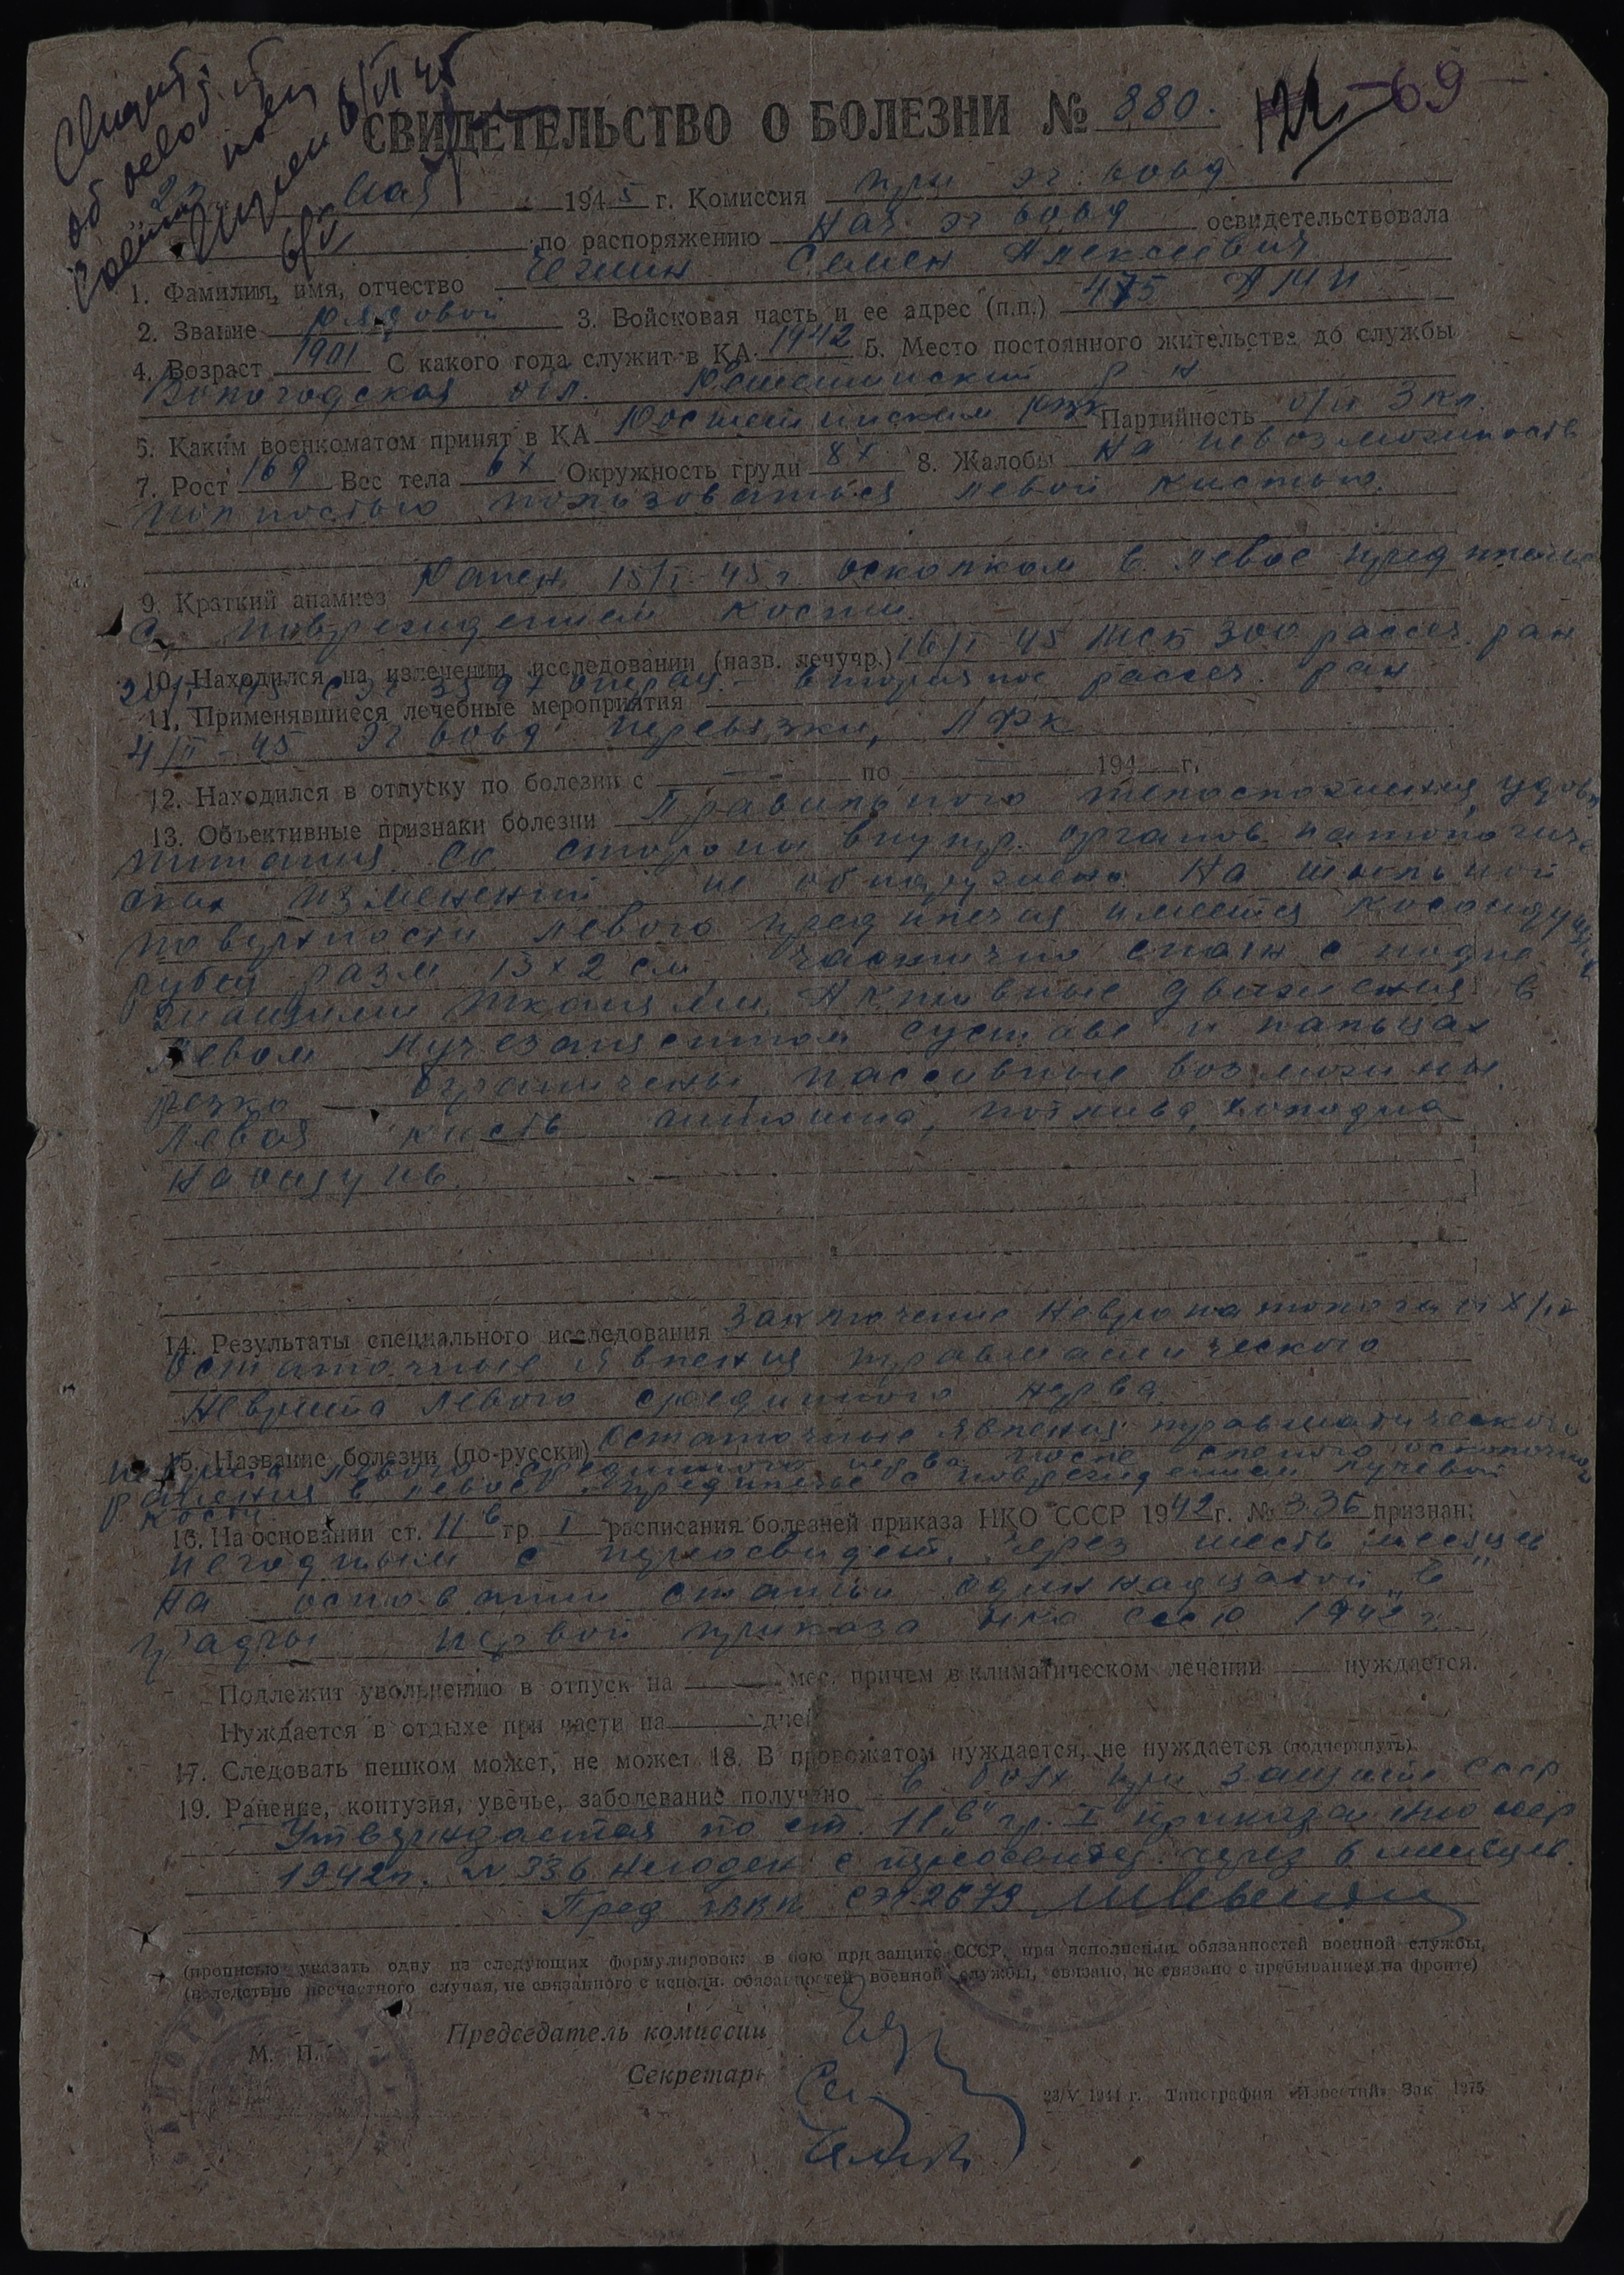 СВИДЕТЕЛЬСТВО О БОЛЕЗНИ № 880.
69
мая 1945 г. Комиссия при эг 6069
по распоряжению Нач эг 6069 освидетельствовала
1. Фамилия, имя, отчество Семен Алексеевич
2. Звание рядовой 3. Войсковая часть и ее адрес (п.п.) 475
4. Возраст 1901 С какого года служит в КА 1942 5. Место постоянного жительства до службы
Вологодская обл. р-н
5. Каким военкоматом принят в КА Партийность б/п 3 кл.
7. Рост 169 Вес тела Окружность груди 8. Жалобы На невозможность
полностью пользоваться левой кистью.
9. Краткий анамнез Ранен 15/I-45 г. осколком в левое предплечье
с повреждением кости.
10. Находился на излечении, исследовании (назв. лечучр.) 16/I 45 300 рассеч. ран
операц. - вторичное рассеч. ран
11. Применявшиеся лечебные мероприятия
4/II-45 эг 6069 перевязки, ЛФК
12. Находился в отпуску по болезни с — по — 194 г.
13. Объективные признаки болезни Правильного телосложения, удовл.
питания. Со стороны внутр. органов патологиче-
ских изменений не обнаружено. На тыльной
поверхности левого предплечья имеется косоидущий
рубец разм 13х2 см частично спаян с подле-
жащими тканями. Активные движения в
левом лучезапястном суставе и пальцах
резко ограничены, пассивные возможны.
Левая кисть потлива, холодна
на ощупь.
14. Результаты специального исследования Заключение невропатолога
Остаточные явления травматического
неврита левого срединного нерва.
15. Название болезни (по-русски) Остаточные явления травматического
неврита левого срединного нерва после слепого осколочного
ранения в левое предплечье с повреждением лучевой
кости
16. На основании ст. 11 в гр. I расписания болезней приказа НКО СССР 1942 г. № 336 признан:
негодным с переосвидет. через шесть месяцев
на основании статьи одиннадцатой „в"
графы первой приказа НКО СССР 1942 г.
Подлежит увольнению в отпуск на — мес. причем в климатическом лечении — нуждается.
Нуждается в отдыхе при части на дней
17. Следовать пешком может, не может 18. В провожатом нуждается, не нуждается (подчеркнуть).
19. Ранение, контузия, увечье, заболевание получено в боях при защите СССР
Утверждается по ст. 11 „в" гр. I приказа НКО СССР
1942 г. № 336 негоден с переосвидет. через 6 месяцев.
Пред. ГВВК СЭГ 2679
(прописью указать одну из следующих формулировок: в бою при защите СССР, при исполнении обязанностей военной службы,
(вследствие несчастного случая, не связанного с исполн. обязанностей военной службы, связано, не связано с пребыванием на фронте)
Председатель комиссии
М. П.
Секретарь
23/V 1944 г. Типография «Известий» Зак 1275